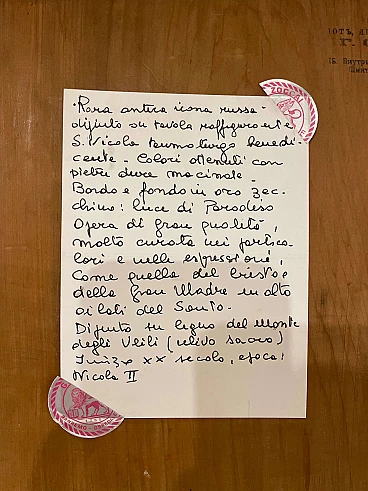 ІОТЪ, Д
Г. С
Б. Внутри
ZOCCAI
· Rara antica icona russa -
dipinto su tavola raffigurante
S. Nicola taumaturgo benedi-
cente - Colori ottenuti con
pietre dure macinate -
Bordo e fondo in oro zec-
chino: luce di Paradiso
Opera di gran qualità,
molto curata nei partico-
lari e nelle espressioni,
come quella del Cristo e
della Gran Madre in alto
ai lati del Santo.
Dipinto su legno del Monte
degli Ulivi (ulivo sacro)
Inizio XX secolo, epoca:
Nicola II